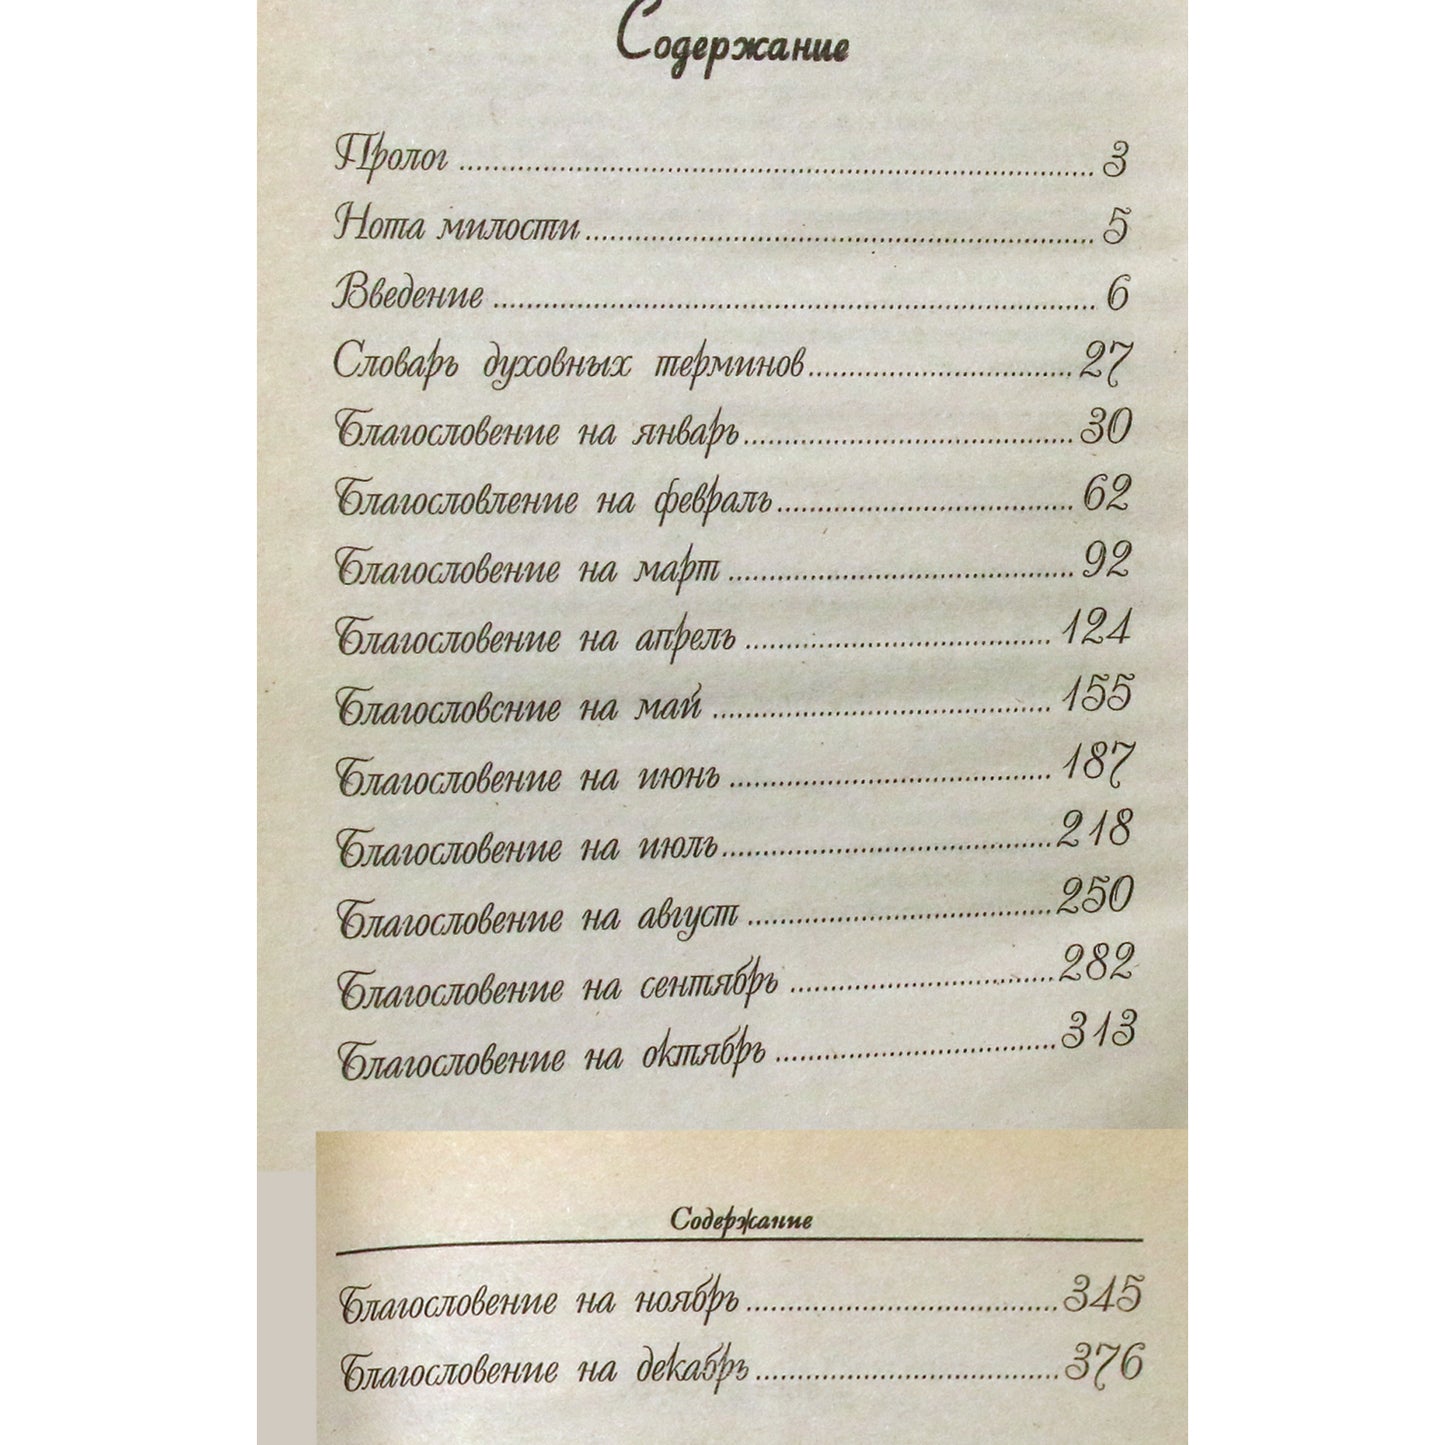 Содержание
Пролог 3
Нота милости 5
Введение 6
Словарь духовных терминов 27
Благословение на январь 30
Благословление на февраль 62
Благословение на март 92
Благословение на апрель 124
Благословсние на май 155
Благословение на июнь 187
Благословение на июль 218
Благословение на август 250
Благословение на сентябрь 282
Благословение на октябрь 313
Содержание
Благословение на ноябрь 345
Благословение на декабрь 376